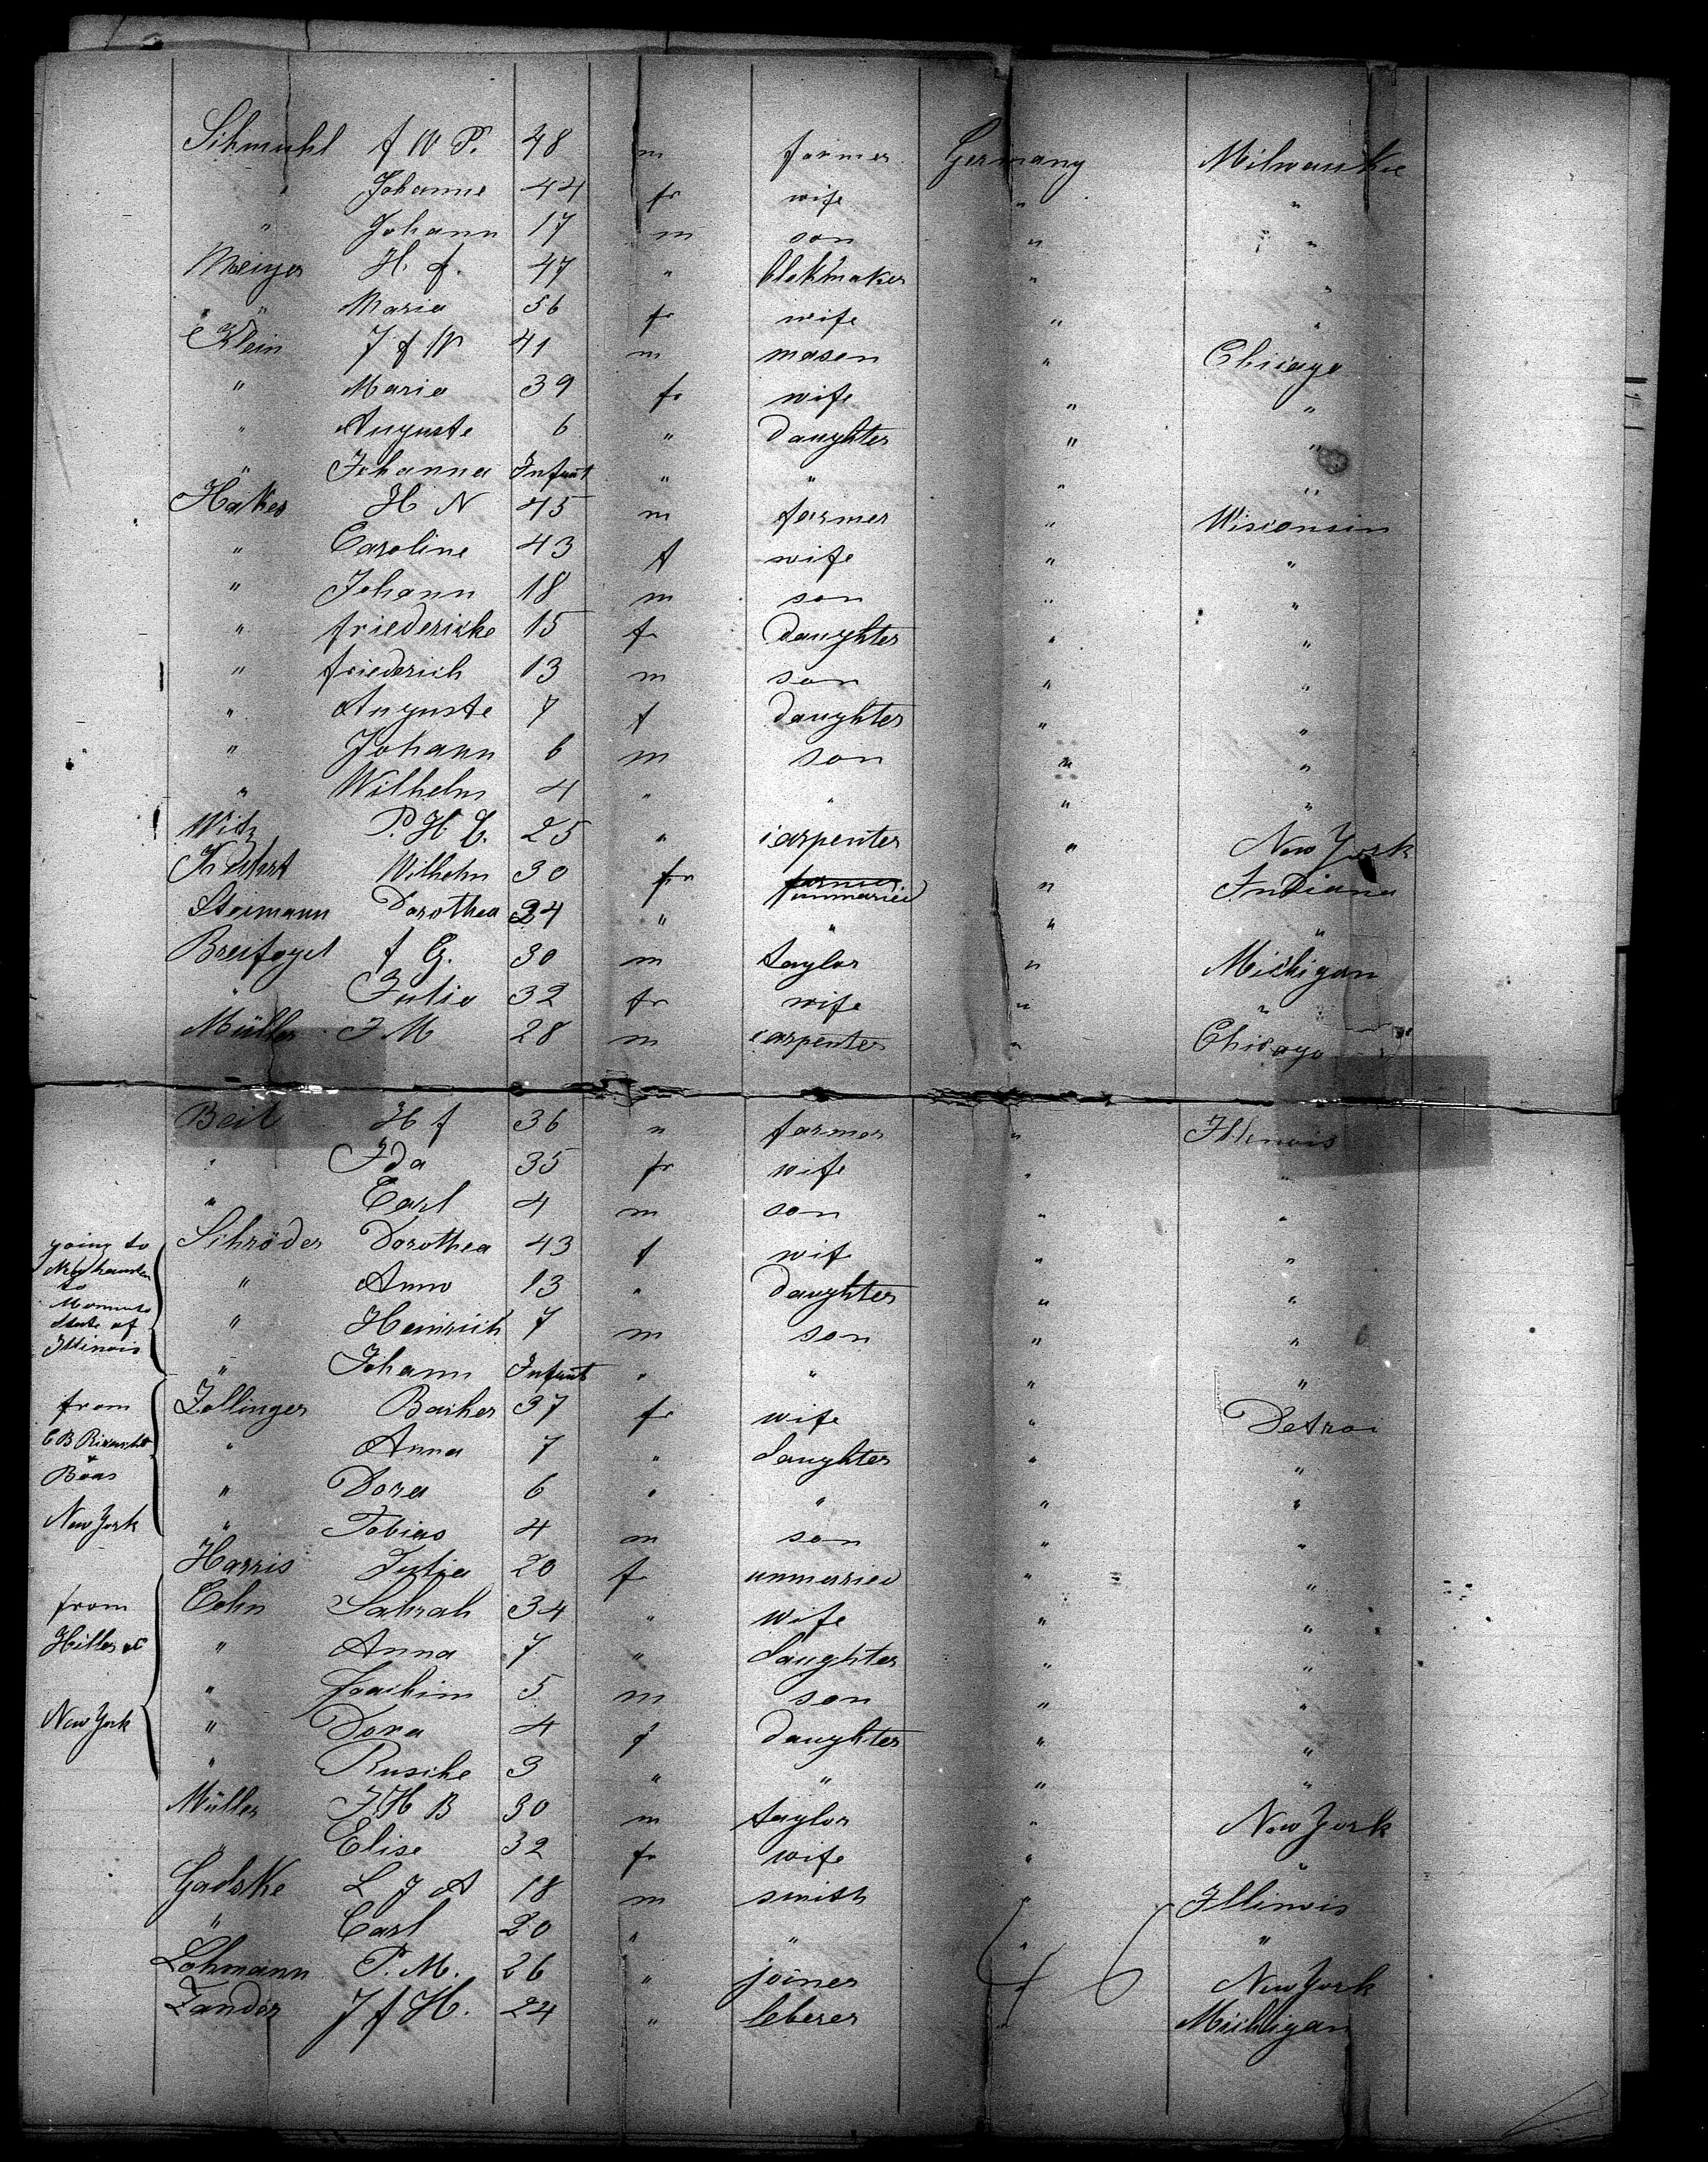 Schmuhl f W P. 48 m farmer Germany Milwaukie
Johanne 44 f wife " "
" Johann 17 m son " "
Meiyer H. f. 47 " Clokmaker " "
" Maria 56 f wife " "
Klein J f W 41 m mason " Chicago
" Maria 39 f wife " "
" Auguste 6 " daughter " "
" Johanna Infant " " " "
Haker H N 45 m farmer " Wisconsin
" Caroline 43 f wife " "
" Johann 18 m son " "
" friedericke 15 f daughter " "
" friederich 13 m son " "
" Auguste 7 f daughter " "
" Johann 6 m son " "
" Wilhelm 4 " " " "
Witz P. H C. 25 " carpenter " New York
Wilhelm 30 f farmer unmaried " Indiana
Steimann Dorothea 24 " " " "
Breifogel f G. 30 m taylor " Michigan
" Julia 32 f wife " "
Müller J M 28 m carpenter " Chicago
Beit H f 36 " farmer " Illinois
" Ida 35 f wife " "
" Carl 4 m son " "
going to
State of
Illinois
Schröder Dorothea 43 f wife " "
" Anna 13 " daughter " "
" Heinrich 7 m son " "
" Johann Infant " " " "
from
Boas
New York
Zollinger 37 f wife " Detroi
" Anna 7 " daughter " "
" Dora 6 " " " "
" Tobias 4 m son " "
Harris Julia 20 f unmaried " "
from
Hiller & C
New York
Cohn Sahrah 34 " wife " "
" Anna 7 " daughter " "
" Joachim 5 m son " "
" Dora 4 f daughter " "
" Rusche 3 " " " "
Müller J H B 30 m taylor " New York
" Elise 32 f wife " "
Gadske L J A 18 m smith " Illinois
" Carl 20 " " " "
Lohmann P. M. 26 " joiner " New York
Zander J f H. 24 " leberer " Michigan
46